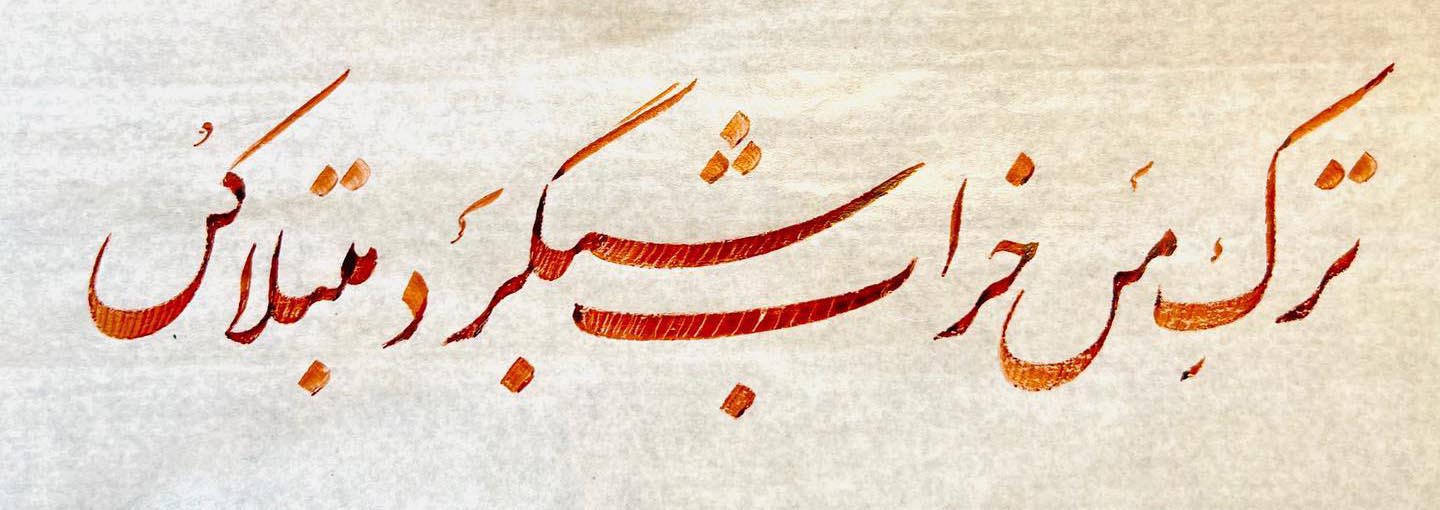 ترکِ مَن خراب شبگَرد مبتلا کُن